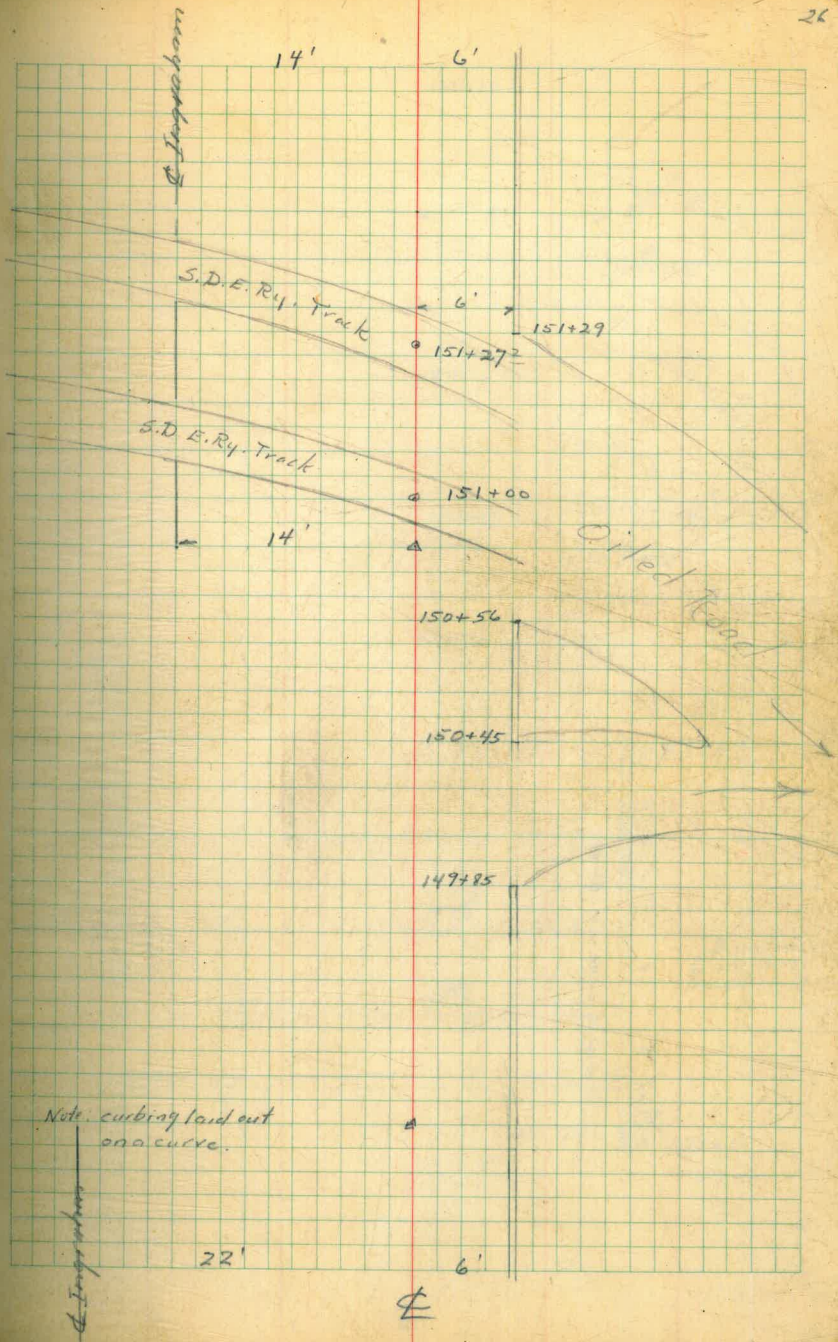 26
14' 6'
℄ Ingraham
S.D.E.Ry. Track
6'
151+29
151+27²
S.D E.Ry. Track
151+00
14'
Oiled Road
150+56
150+45
149+85
Note: curbing laid out
on a curve.
℄ Ingraham
22' 6'
℄